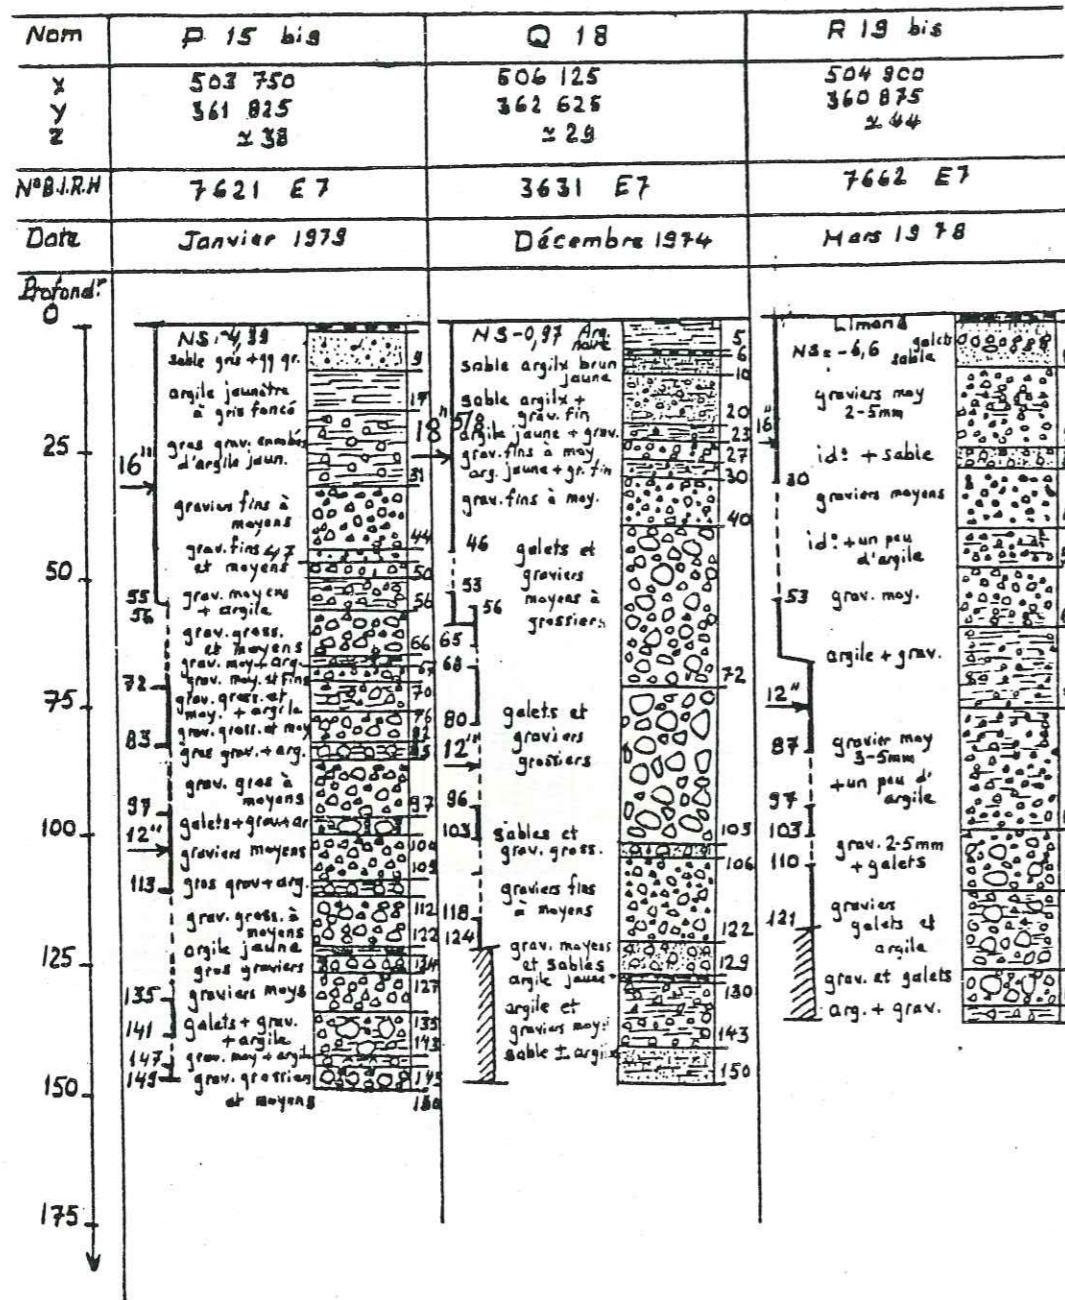 Nom P 15 bis Q 18 R 19 bis
X 503 750 506 125 504 900
Y 361 825 362 625 360 875
Z ≃ 38 ≃ 29 ≃ 44
N°B.I.R.H 7621 E7 3631 E7 7662 E7
Date Janvier 1979 Décembre 1974 Mars 1978
Profond.r
0
25
50
75
100
125
150
175
NS:-4,39
sable gris + qq gr.
9
argile jaunâtre
à gris foncé
17
gros grav. enrobés
d'argile jaun.
31
16"
graviers fins à
moyens
44
grav. fins 47
et moyens
50
55
56
grav. moyens
+ argile
56
grav. gross.
et moyens
66
grav. moy + arg.
67
grav. moy. et fins
70
72
grav. gross. et
moy. + argile
76
grav. gross. et moy
82
83
gros grav. + arg.
85
grav. gros à
moyens
97
97
galets + grav + ar
12"
graviers moyens
109
113
gros grav + arg.
112
grav. gross. à
moyens
122
argile jaune
gros graviers
127
135
graviers moys
135
141
galets + grav.
+ argile
143
147
grav. moy + argile
149
grav. grossiers
et moyens
150
NS -0,97 Arg.
noire
5
6
sable argilx brun
jaune
10
sable argilx +
grav. fin
20
18" 5/8
argile jaune + grav.
23
grav. fins à moy
27
arg. jaune + gr. fin
30
grav. fins à moy.
40
46
53
56
galets et
graviers
moyens à
grossiers
65
68
72
80
12"
galets et
graviers
grossiers
96
103
103
sables et
grav. gross.
106
graviers fins
à moyens
118
122
124
grav. moyens
et sables
129
argile jaune
130
argile et
graviers moy.
143
sable ± argilx
150
Limons
NS= -6,6 galets
sable
graviers moy
2-5mm
16"
id: + sable
30
graviers moyens
id: + un peu
d'argile
53
grav. moy.
argile + grav.
12"
87
gravier moy
3-5mm
+ un peu d'
argile
97
103
grav. 2-5mm
+ galets
110
121
graviers
galets et
argile
grav. et galets
arg. + grav.